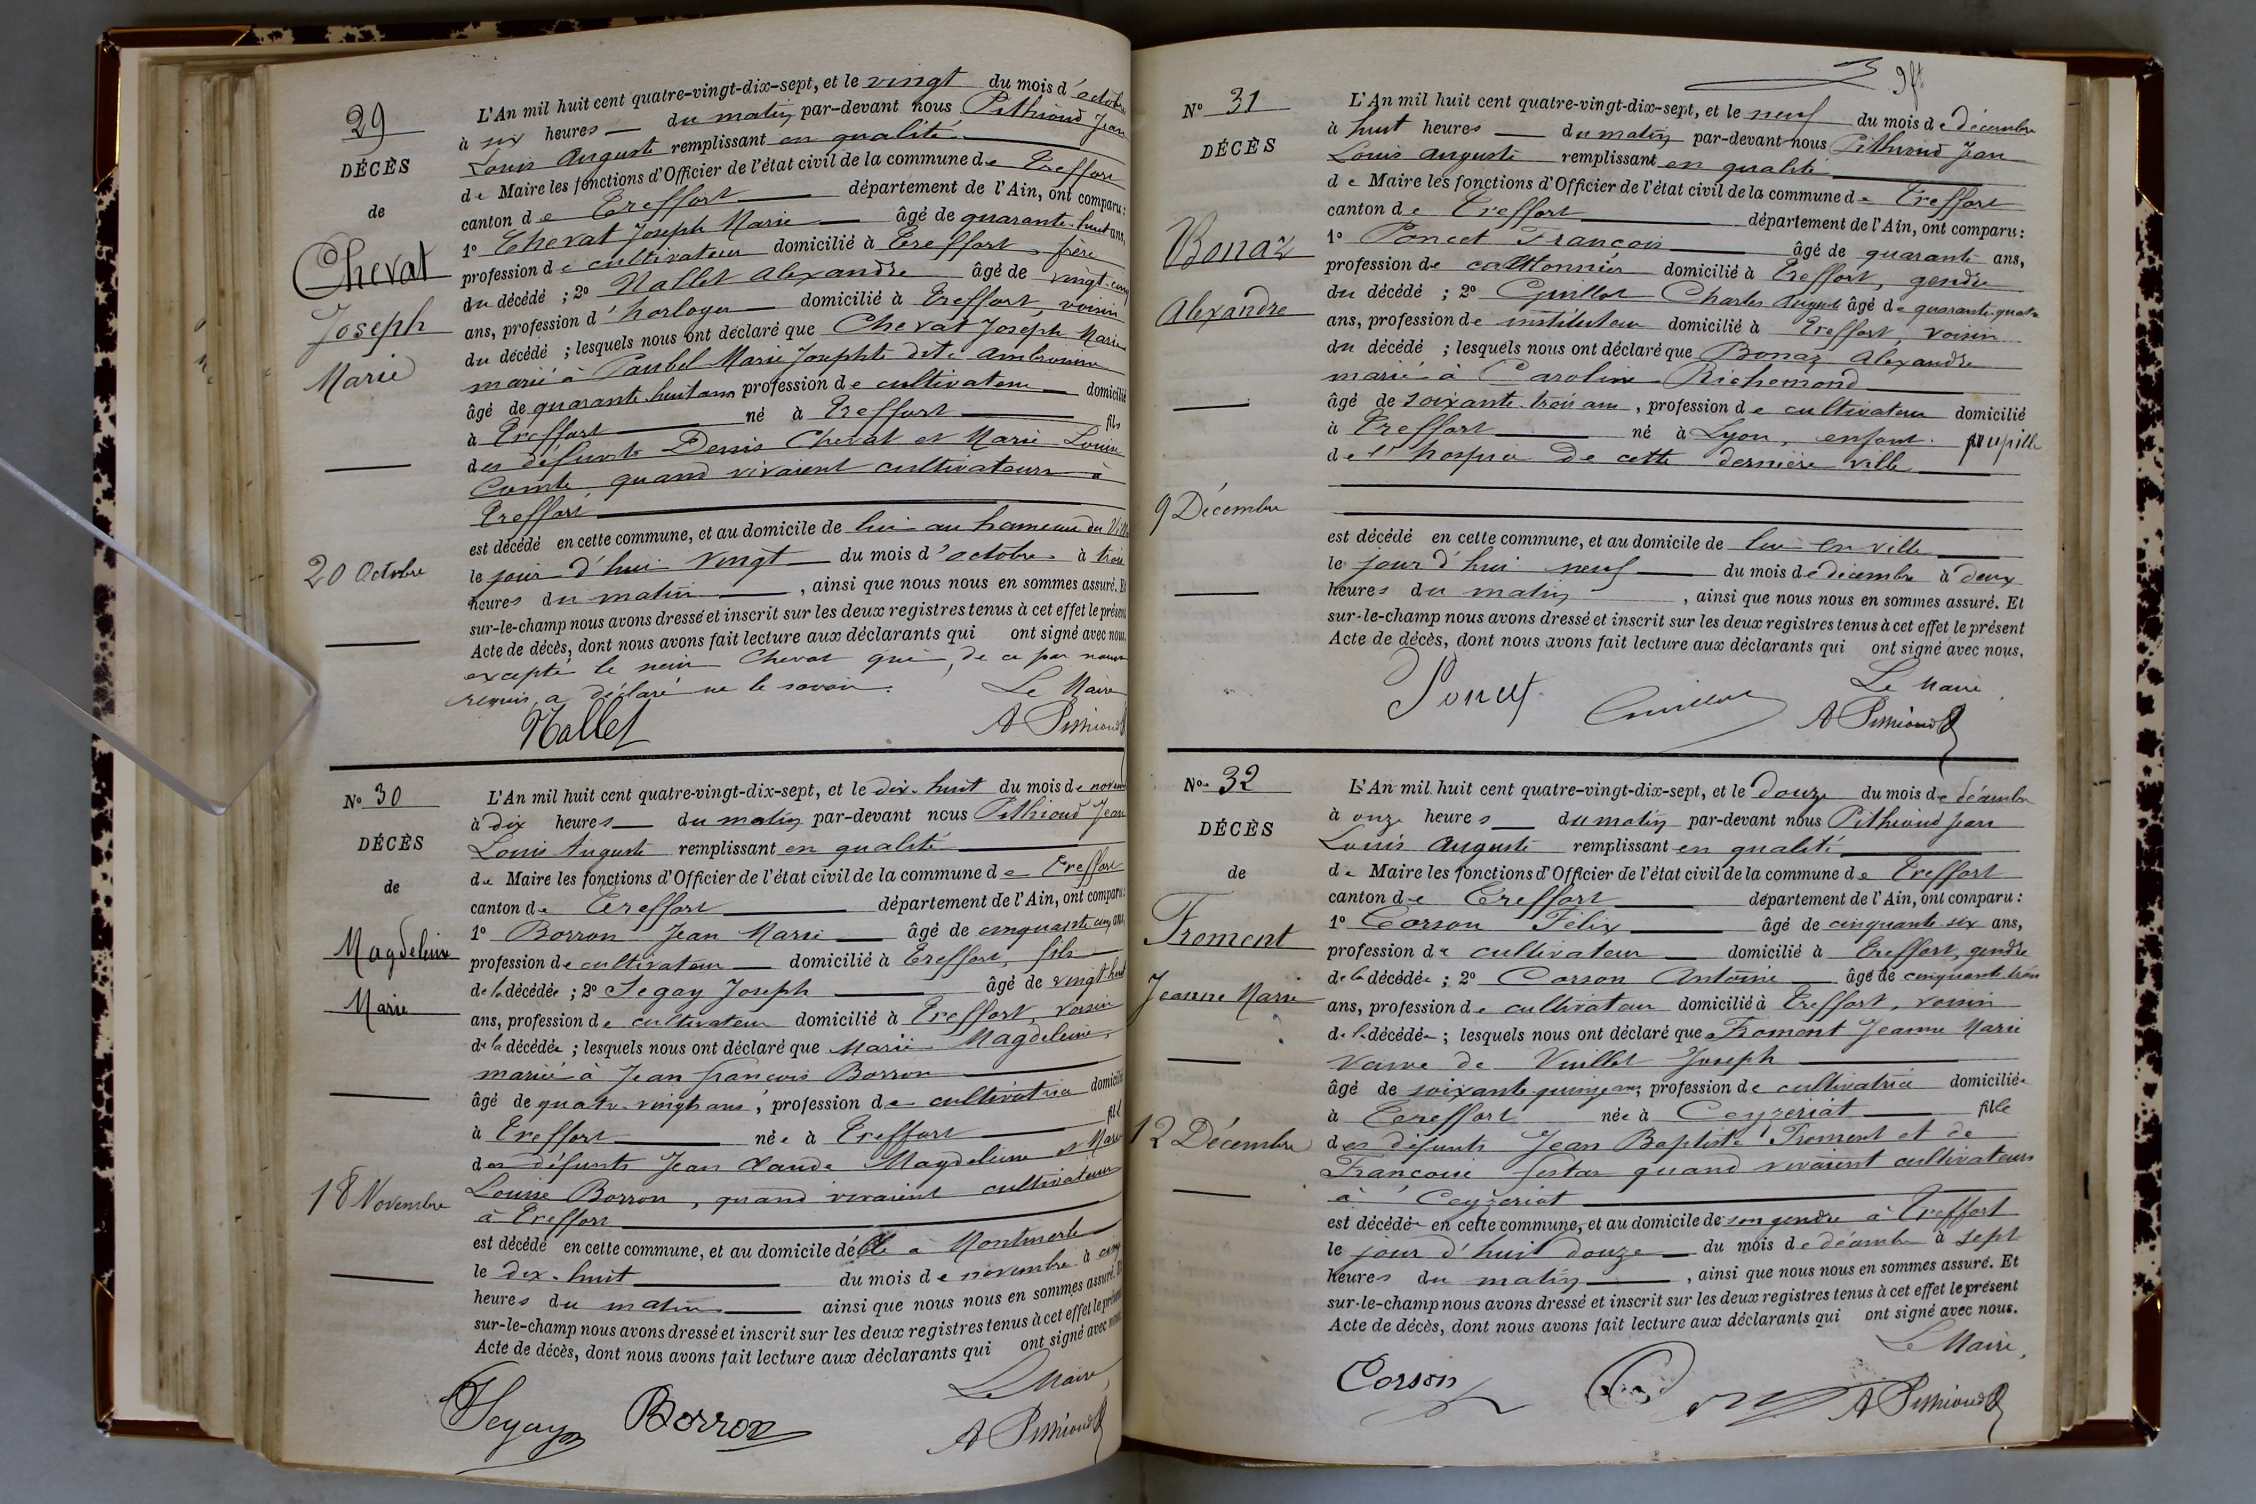 29
DÉCÈS
de
Chevat
Joseph
Marie
20 Octobre
L'An mil huit cent quatre-vingt-dix-sept, et le vingt du mois d'octobre
à six heures du matin par-devant nous Pithioud Jean
Louis Auguste remplissant en qualité
de Maire les fonctions d'Officier de l'état civil de la commune de Treffort
canton de Treffort département de l'Ain, ont comparu:
1° Chevat Joseph Marie âgé de quarante-huit ans,
profession de cultivateur domicilié à Treffort, frère
du décédé ; 2° Nallet Alexandre âgé de vingt-cinq
ans, profession d'horloger domicilié à Treffort, voisin
du décédé ; lesquels nous ont déclaré que Chevat Joseph Marie
marié à Paubel Marie Josephte dite Ambroisine
âgé de quarante-huit ans profession de cultivateur domicilié
à Treffort né à Treffort fils
des défunts Denis Chevat et Marie Louise
Comte, quand vivaient cultivateurs à
Treffort
est décédé en cette commune, et au domicile de lui au hameau du
le jour d'hui vingt du mois d'octobre à trois
heures du matin, ainsi que nous nous en sommes assuré. Et
sur-le-champ nous avons dressé et inscrit sur les deux registres tenus à cet effet le présent
Acte de décès, dont nous avons fait lecture aux déclarants qui ont signé avec nous.
excepté le sieur Chevat qui, de ce par nous
requis, a déclaré ne le savoir. Le Maire
Nallet A Pithioud
N° 30
DÉCÈS
de
Magdeleine
Marie
18 Novembre
L'An mil huit cent quatre-vingt-dix-sept, et le dix-huit du mois de novem
à dix heures du matin par-devant nous Pithioud Jean
Louis Auguste remplissant en qualité
de Maire les fonctions d'Officier de l'état civil de la commune de Treffort
canton de Treffort département de l'Ain, ont comparu:
1° Borron Jean Marie âgé de cinquante cinq ans,
profession de cultivateur domicilié à Treffort, fils
de la décédée ; 2° Segay Joseph âgé de vingt-huit
ans, profession de cultivateur domicilié à Treffort, voisin
de la décédée ; lesquels nous ont déclaré que Marie Magdeleine,
marié à Jean François Borron
âgé de quatre-vingts ans, profession de cultivatrice domicilié
à Treffort née à Treffort fille
des défunts Jean Claude Magdeleine et Marie
Louise Borron, quand vivaient cultivateurs
à Treffort
est décédé en cette commune, et au domicile d'elle à Montmerle
le dix-huit du mois de novembre à cinq
heures du matin ainsi que nous nous en sommes assuré. Et
sur-le-champ nous avons dressé et inscrit sur les deux registres tenus à cet effet le présent
Acte de décès, dont nous avons fait lecture aux déclarants qui ont signé avec nous.
Le Maire,
Segay Borron A Pithioud
N° 31
DÉCÈS
Bonaz
Alexandre
9 Décembre
L'An mil huit cent quatre-vingt-dix-sept, et le neuf du mois de décembre
à huit heures du matin par-devant nous Pithioud Jean
Louis Auguste remplissant en qualité
de Maire les fonctions d'Officier de l'état civil de la commune de Treffort
canton de Treffort département de l'Ain, ont comparu:
1° Poncet François âgé de quarante ans,
profession de cantonnier domicilié à Treffort, gendre
du décédé ; 2° Guillot Charles Auguste âgé de quarante-quatre
ans, profession de instituteur domicilié à Treffort, voisin
du décédé ; lesquels nous ont déclaré que Bonaz Alexandre
marié à Caroline Richemond
âgé de soixante-trois ans, profession de cultivateur domicilié
à Treffort né à Lyon, enfant pupille
de l'hospice de cette dernière ville
est décédé en cette commune, et au domicile de lui en ville
le jour d'hui neuf du mois de décembre à deux
heures du matin, ainsi que nous nous en sommes assuré. Et
sur-le-champ nous avons dressé et inscrit sur les deux registres tenus à cet effet le présent
Acte de décès, dont nous avons fait lecture aux déclarants qui ont signé avec nous.
Le Maire
Poncet Guillot A Pithioud
N° 32
DÉCÈS
de
Froment
Jeanne Marie
12 Décembre
L'An mil huit cent quatre-vingt-dix-sept, et le douze du mois de décembre
à onze heures du matin par-devant nous Pithioud Jean
Louis Auguste remplissant en qualité
de Maire les fonctions d'Officier de l'état civil de la commune de Treffort
canton de Treffort département de l'Ain, ont comparu:
1° Corson Félix âgé de cinquante-six ans,
profession de cultivateur domicilié à Treffort, gendre
de la décédée ; 2° Corson Antoine âgé de cinquante-trois
ans, profession de cultivateur domicilié à Treffort, voisin
de la décédée ; lesquels nous ont déclaré que Froment Jeanne Marie
veuve de Vuillet Joseph
âgé de soixante quinze ans, profession de cultivatrice domiciliée
à Treffort née à Ceyzériat fille
des défunts Jean Baptiste Froment et de
Françoise quand vivaient cultivateurs
à Ceyzériat
est décédée en cette commune, et au domicile de son gendre à Treffort
le jour d'hui douze du mois de décembre à sept
heures du matin, ainsi que nous nous en sommes assuré. Et
sur-le-champ nous avons dressé et inscrit sur les deux registres tenus à cet effet le présent
Acte de décès, dont nous avons fait lecture aux déclarants qui ont signé avec nous.
Le Maire,
Corson A Pithioud